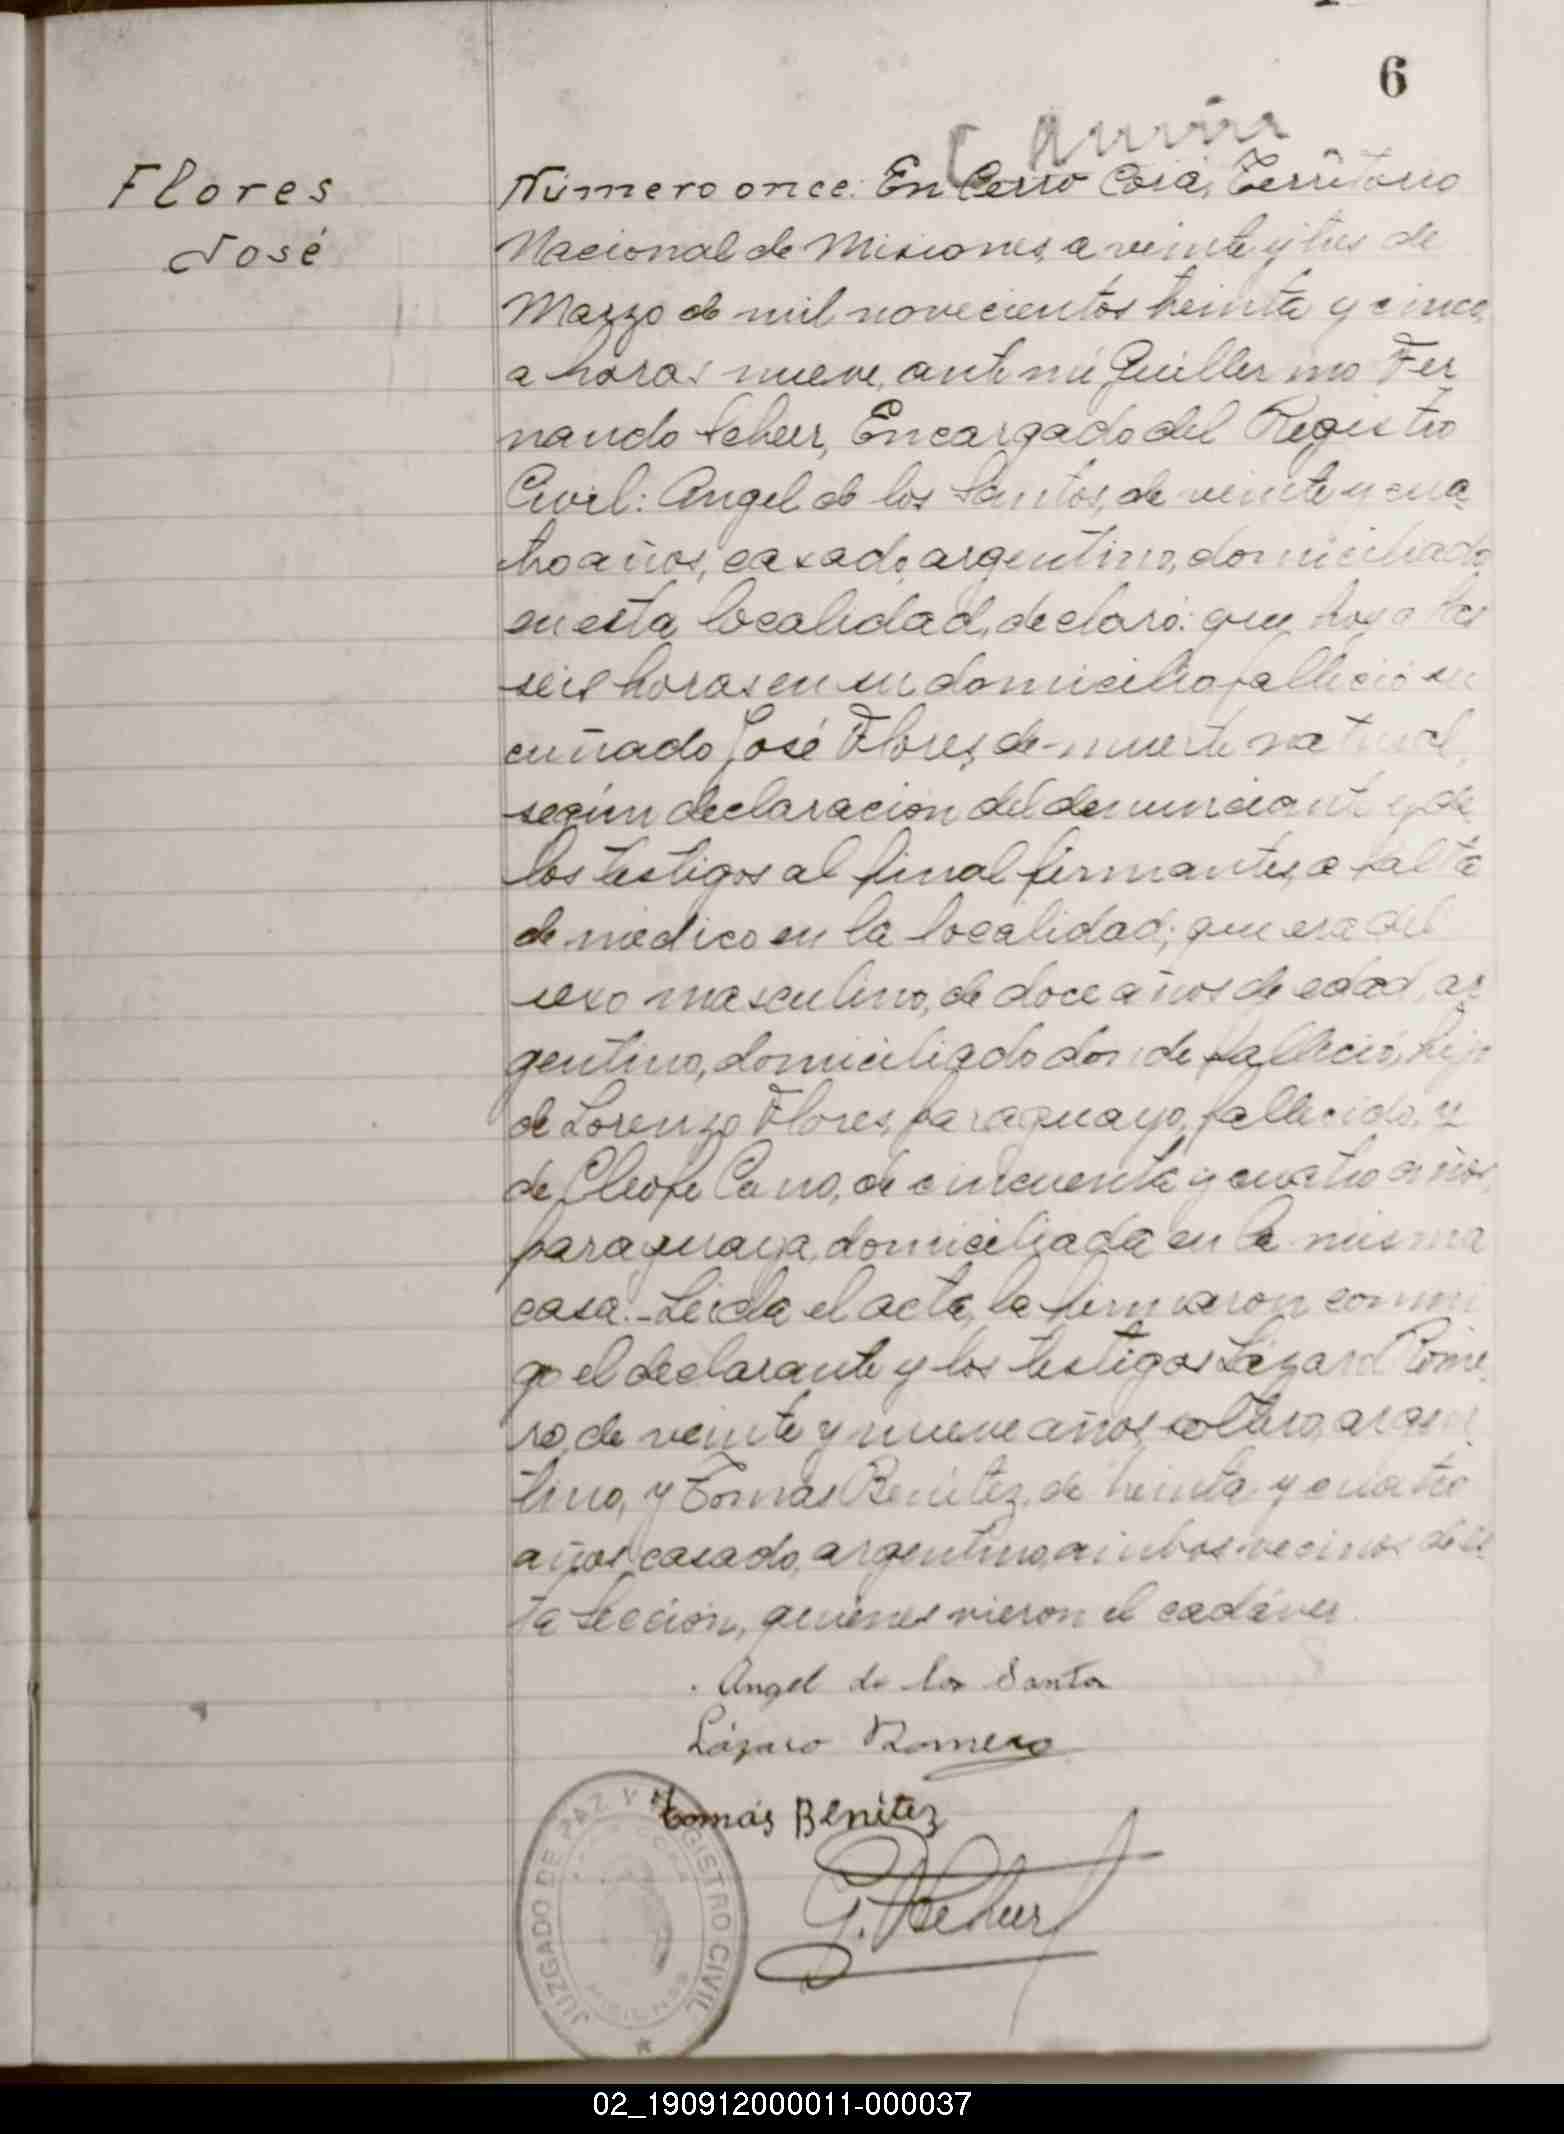 6
Flores
José
Número once: En Cerro Corá, Territorio
Nacional de Misiones, a veinte y tres de
Marzo de mil novecientos treinta y cinco,
a horas nueve, ante mi Guillermo Fer
nando Scheer, Encargado del Registro
Civil: Angel de los Santos, de veinte y cua
tro años, casado, argentino, domiciliado
en esta localidad, declaró: que hoy a las
seis horas en su domicilio falleció su
cuñado José Flores, de muerte natural,
según declaración del denunciante y de
los testigos al final firmantes, a falta
de médico en la localidad; que era del
sexo masculino, de doce años de edad, ar
gentino, domiciliado donde falleció, hijo
de Lorenzo Flores, paraguayo, fallecido, y
de Cleofe Cano, de cincuenta y cuatro años,
paraguaya, domiciliada en la misma
casa.- Leida el acta, la firmaron conmi
go el declarante y los testigos Lázaro Rome
ro, de veinte y nueve años, soltero, argen
tino, y Tomás Benítez, de treinta y cuatro
años, casado, argentino, ambos vecinos de es
ta Sección, quienes vieron el cadáver.
Angel de los Santos
Lázaro Romero
Tomás Benítez
G. Scheer
JUZGADO DE PAZ Y REGISTRO CIVIL
MISIONES
02_190912000011-000037